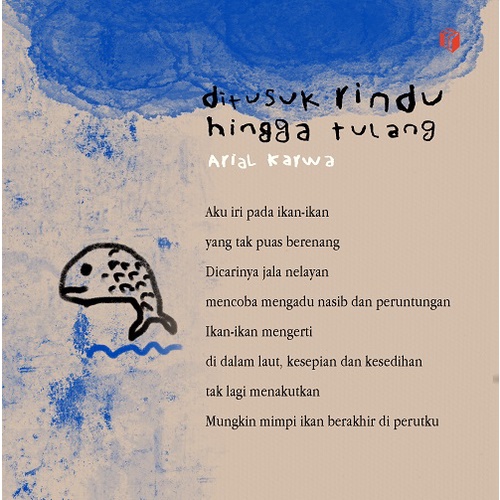 ditusuk rindu
hingga tulang
Arial Karwa
Aku iri pada ikan-ikan
yang tak puas berenang
Dicarinya jala nelayan
mencoba mengadu nasib dan peruntungan
Ikan-ikan mengerti
di dalam laut, kesepian dan kesedihan
tak lagi menakutkan
Mungkin mimpi ikan berakhir di perutku